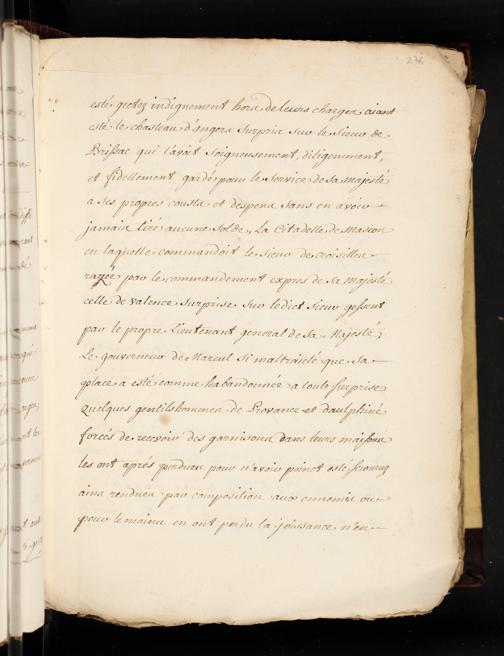 276
esté gectez indignement hors de leurs charges aiant
esté le chasteau d'angers surpris sur le sieur de
Brissac qui l'avoit soigneusement, diligemment,
et fidellement gardé pour le service de sa majesté
a ses propres cousts et despens sans en avoir
jamais tiré aucune solde, La Citadelle de Mascon
en laquelle commandoit le sieur de croisilles
razée par le commandement expres de sa Majesté
celle de valence surprise sur ledict sieur gessent
par le propre Lieutenant general de sa Majesté;
Le gouverneur de Mareul si maltraicté que sa
place a esté comme habandonnée a toute surprise
quelques gentilshommes de Provance et daulphiné
forcés de recevoir des garnisons dans leurs maisons
les ont aprés perdues pour n'avoir poinct esté secourus
ains rendues par composition aux ennemis ou
pour le moins en ont perdu la joissance n'en